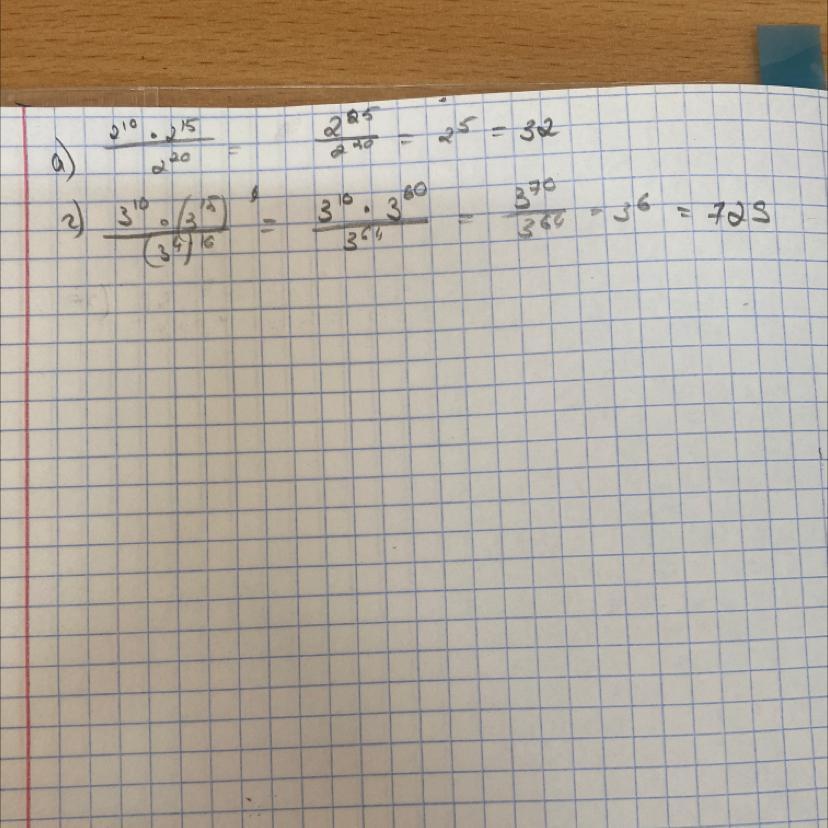 а) 2^10 · 2^15 / 2^20 = 2^25 / 2^20 = 2^5 = 32
г) 3^10 · (3^15)^4 / (3^4)^16 = 3^10 · 3^60 / 3^64 = 3^70 / 3^64 = 3^6 = 729